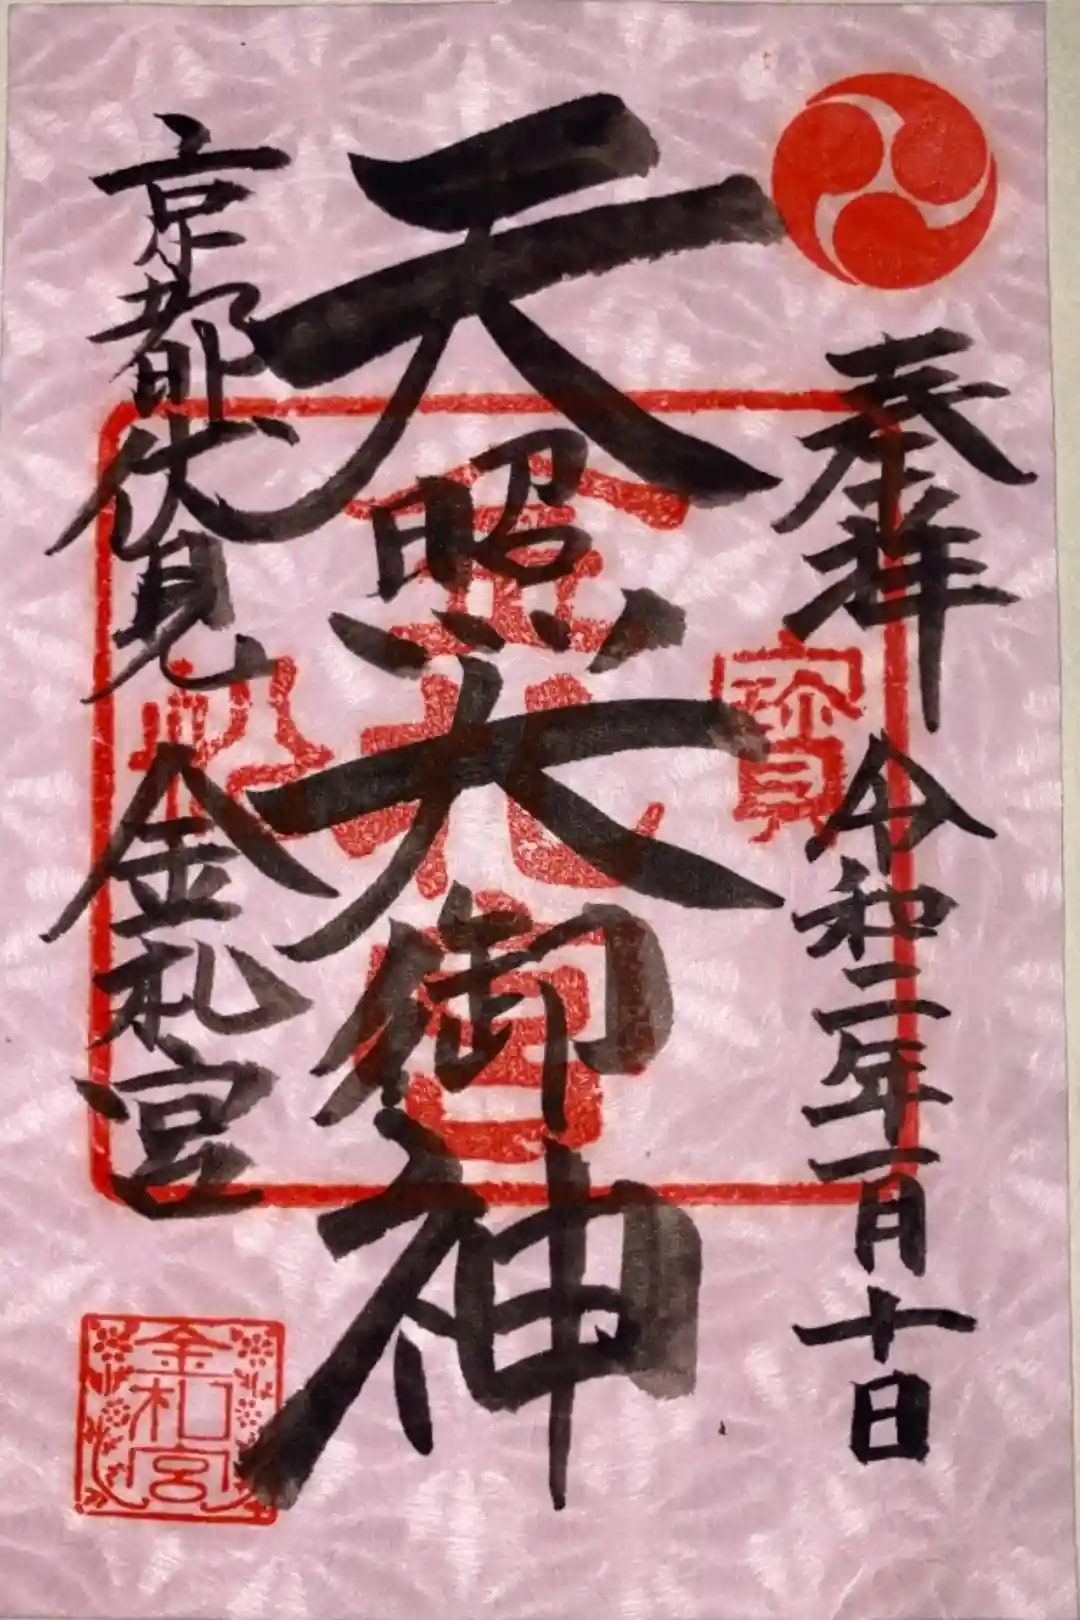 奉拝
令和二年一月十日
天照大御神
京都伏見
金札宮
金札宮
金札宮